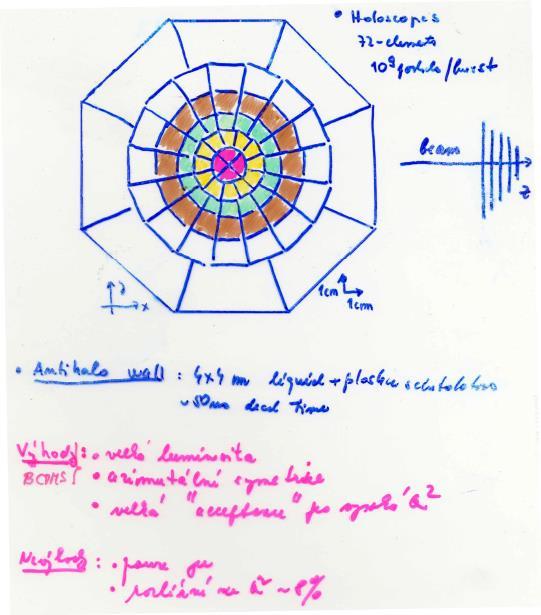 • Holoscopes
72-elements
10⁸ particle/burst
beam
z
y
x
1cm
1cm
• Antihalo wall : 4x4 m liquid + plastic
~50ns dead time
Výhody : • velká luminozita
BCDMS • azimutální symetrie
• velká "acceptance" pro vysoké Q²
Nevýhody : • pouze
• rozlišení na Q² ~ 8%